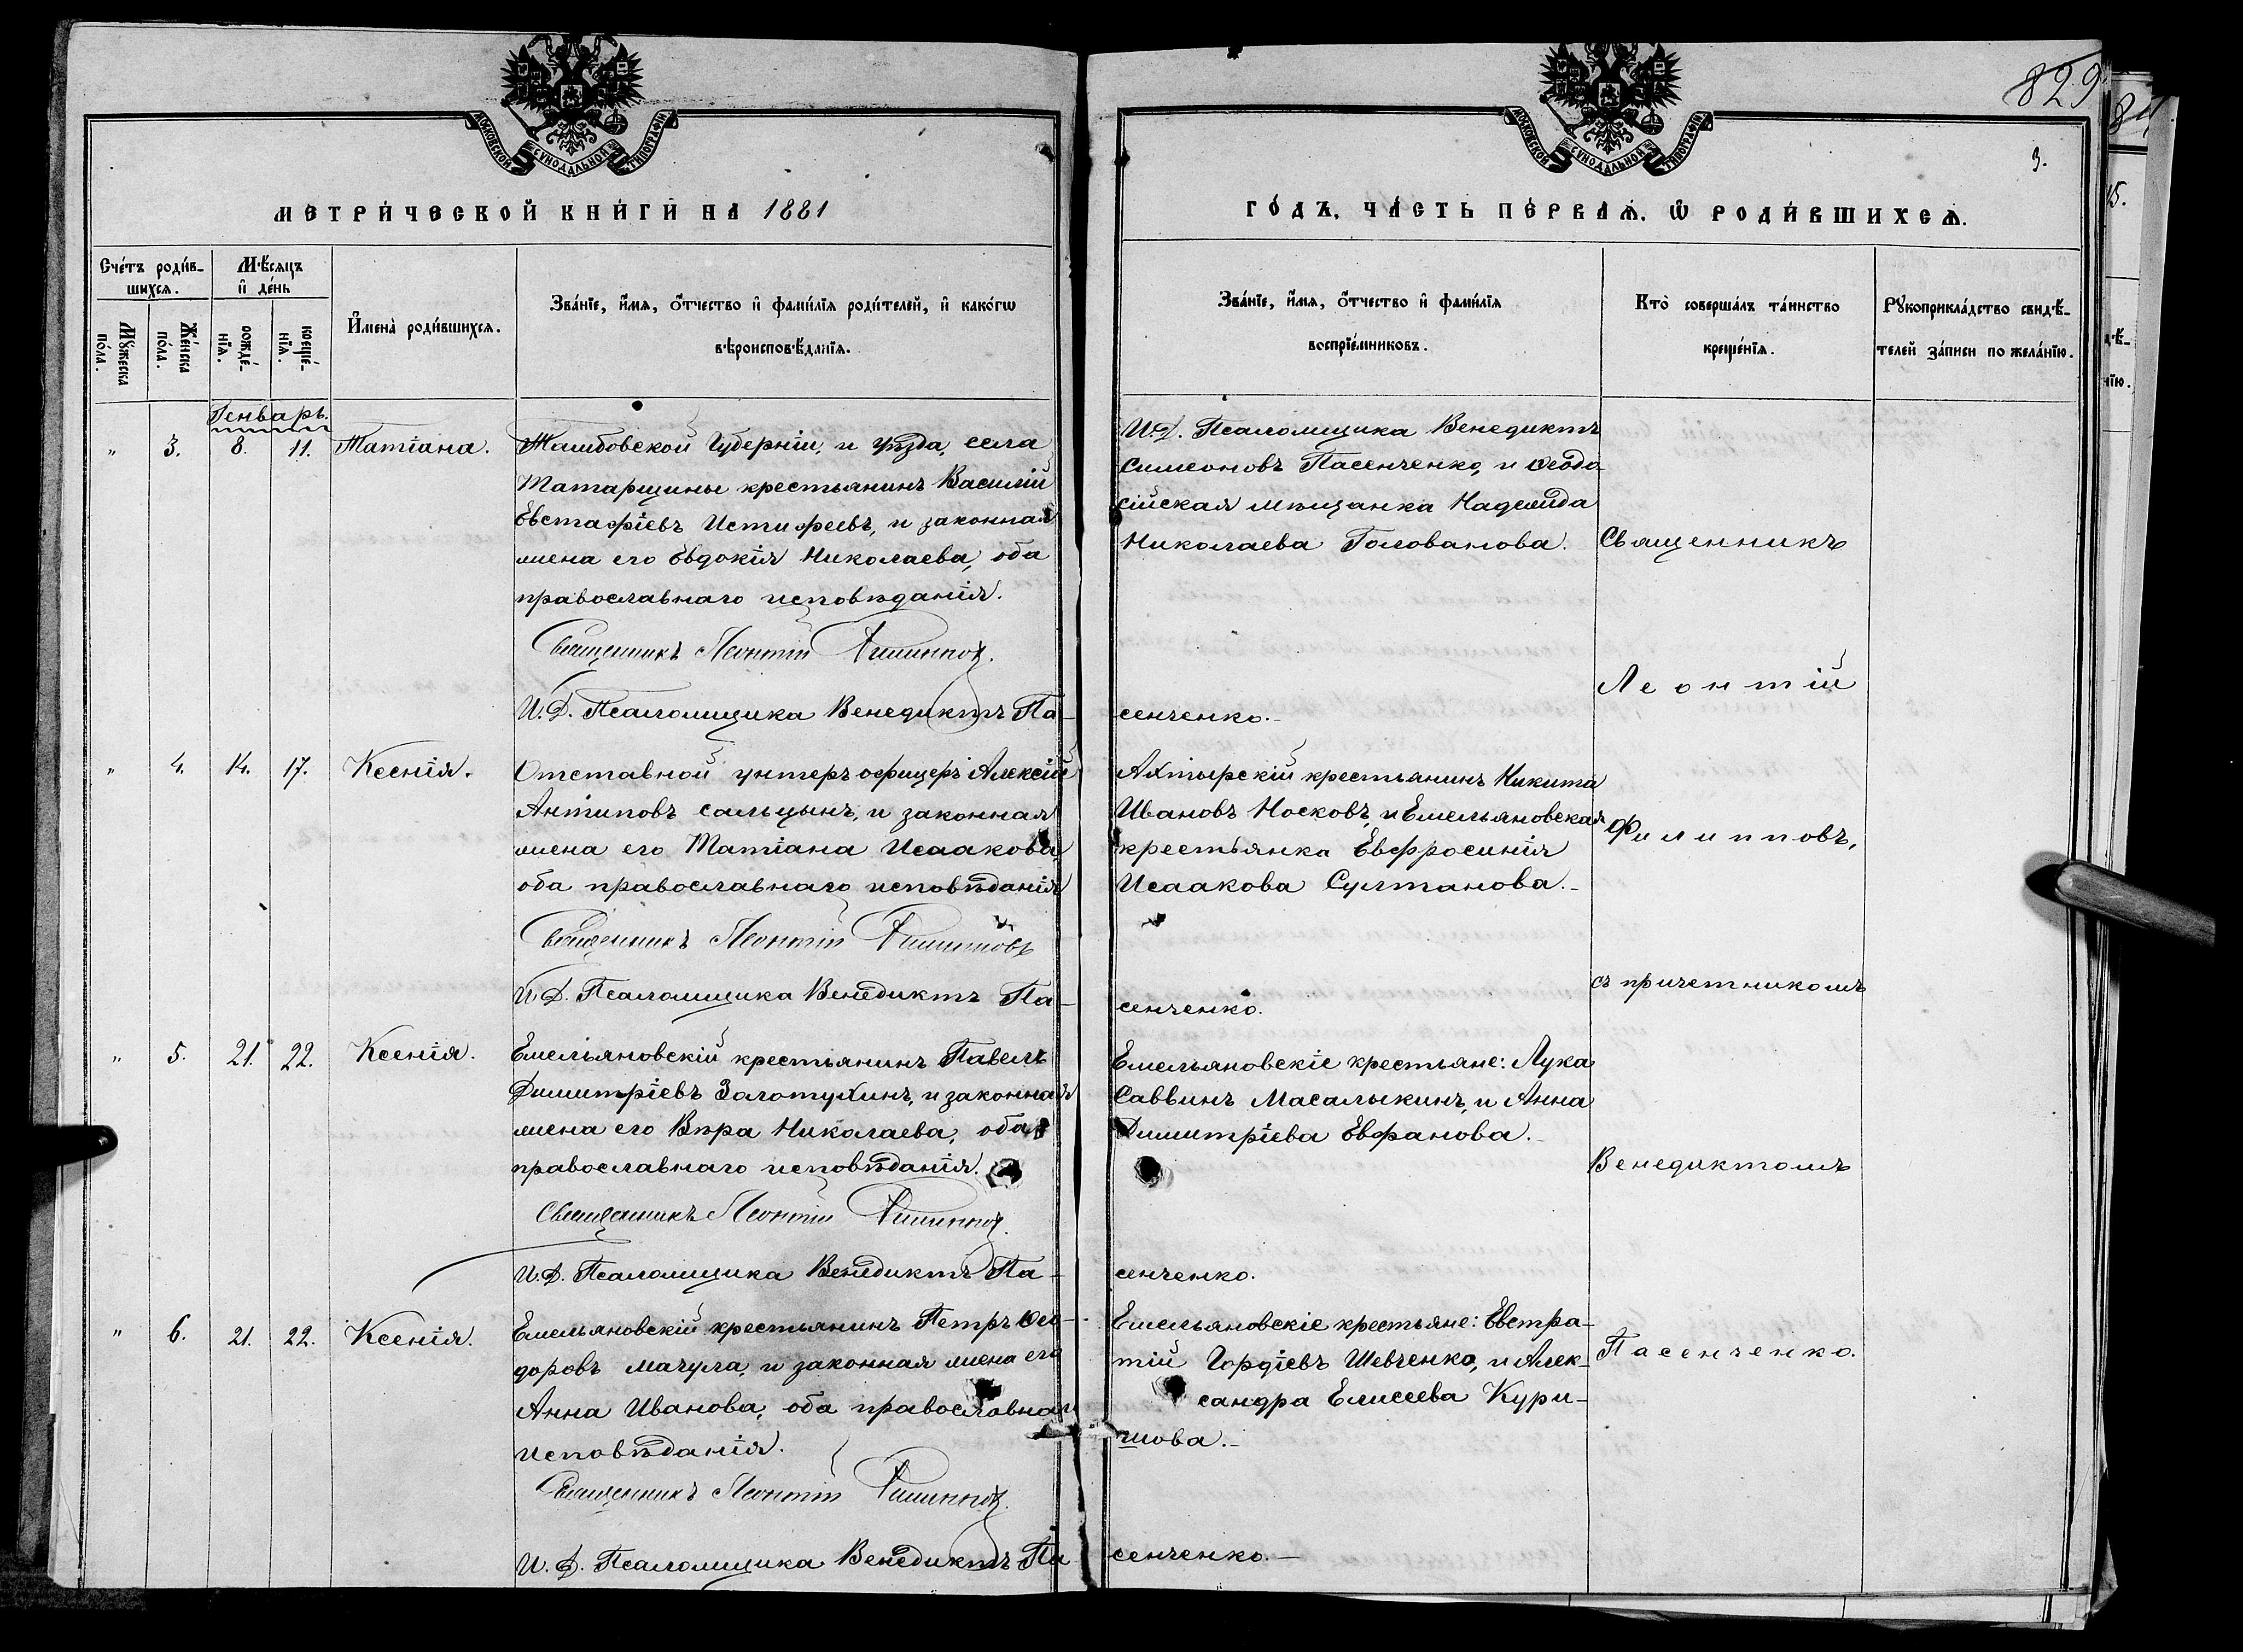 829
84
МОСКОВСКОЙ СѴНОДАЛЬНОЙ ТИПОГРАФІИ
МОСКОВСКОЙ СѴНОДАЛЬНОЙ ТИПОГРАФІИ
3.
МЕТРИ́ЧЕСКОЙ КНИ́ГИ НА 1881
ГО́ДЪ, ЧА́СТЬ ПЕ́РВАѦ, Ѡ҆ РОДИ́ВШИХСѦ.
Сче́тъ роди́в-
шихсѧ.
Мꙋ́жеска по́ла.
Же́нска по́ла.
Мѣ́сѧцъ
и҆ де́нь
рожде́-
нїѧ.
креще́-
нїѧ.
И҆мена̀ роди́вшихсѧ.
Зва́нїе, и҆́мѧ, ѻ҆́тчество и҆ фами́лїѧ роди́телей, и҆ како́гѡ
вѣроисповѣ́данїѧ.
Зва́нїе, и҆́мѧ, ѻ҆́тчество и҆ фами́лїѧ
воспрїе́мниковъ.
Кто̀ соверша́лъ та́инство
креще́нїѧ.
Рꙋкоприкла́дство свидѣ́-
телей за́писи по жела́нїю.
Генварь.
" 3. 8. 11. Татіана.
Тамбовской Губерніи, и уѣзда, села
Татарщины крестьянинъ Василій
Евстафіевъ Истифеевъ, и законная
жена его Евдокія Николаева, оба
православнаго исповѣданія.
Священникъ Леонтій Филипповъ.
И.Д. Псаломщика Венедиктъ Па-
И.Д. Псаломщика Венедиктъ
Симеоновъ Пасенченко, и Ѳеодо-
сійская мѣщанка Надежда
Николаева Голованова.
сенченко.-
Священникъ
Леонтій
Филипповъ,
съ причетникомъ
Венедиктомъ
Пасенченко.
" 4. 14. 17. Ксенія.
Отставной унтеръ офицеръ Алексій
Антиповъ Сальцынъ, и законная
жена его Татіана Исаакова,
оба православнаго исповѣданія
Священникъ Леонтій Филипповъ
И.Д. Псаломщика Венедиктъ Па-
Ахтырскій крестьянинъ Никита
Ивановъ Носковъ, и Емельяновская
крестьянка Евфросинія
Исаакова Султанова.-
сенченко.
" 5. 21. 22. Ксенія.
Емельяновскій крестьянинъ Павелъ
Димитріевъ Золотухинъ, и законная
жена его Вѣра Николаева, оба
православнаго исповѣданія.
Священникъ Леонтій Филипповъ.
И.Д. Псаломщика Венедиктъ Па-
Емельяновскіе крестьяне: Лука
Саввинъ Масалыкинъ, и Анна
Димитріева Евфанова.-
сенченко.
" 6. 21. 22. Ксенія.
Емельяновскій крестьянинъ Петръ Ѳео-
доровъ Мачула, и законная жена его
Анна Иванова, оба православнаго
исповѣданія.
Священникъ Леонтій Филипповъ.
И.Д. Псаломщика Венедиктъ Па
Емельяновскіе крестьяне: Евстра-
тій Гордіевъ Шевченко, и Алек-
сандра Елисеева Кури-
шова.-
сенченко.-